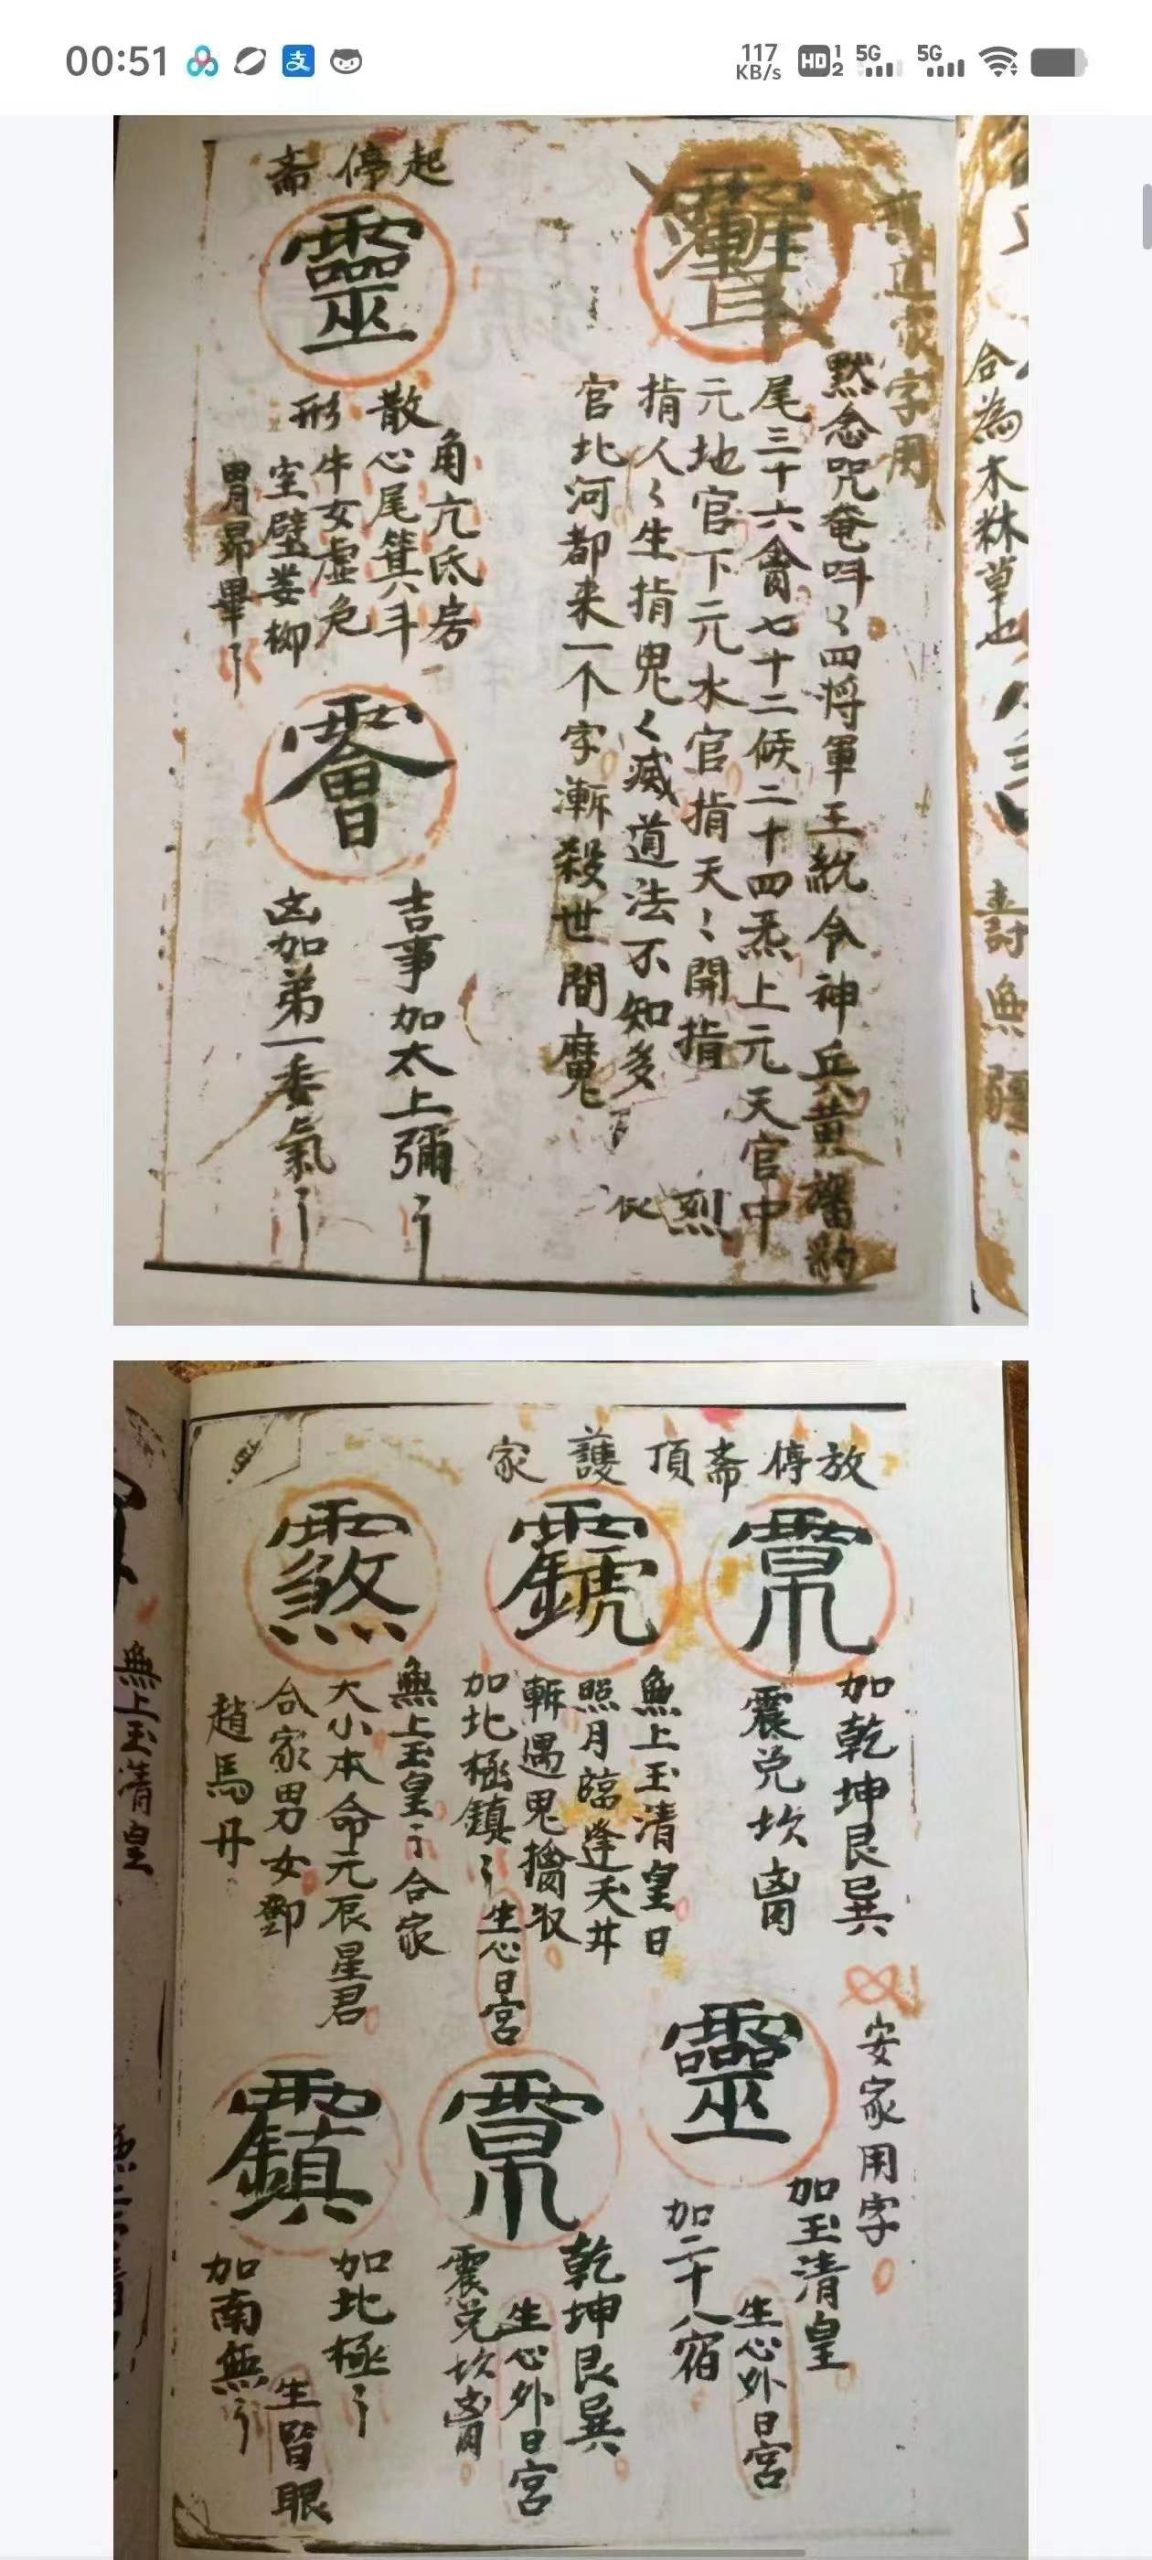 00:51
117 KB/s HD 1 2 5G 5G
合為木林草也
壽無疆
道家字用
默念咒奄吽〻四將軍王統令神兵黃旛豹
尾三十六禽七十二候二十四炁上元天官中
元地官下元水官指天〻開指
指人〻生指鬼〻滅道法不知多
官北河都来一个字漸殺世間魔
烈
化
起停斋
靈
角亢氐房
散心尾箕斗
形牛女虛危
室壁娄柳
胃昴畢
吉事加太上彌
凶加弟一委氣
放停斋頂護家
加乾坤艮巽
震兌坎离
無上玉清皇日
照月臨逢天井
斬遇鬼擒收
加北極鎮
生心日宮
無上玉皇 合家
大小本命元辰星君
合家男女鄧
趙馬
安家用字
靈
加玉清皇
生心外日宮
加二十八宿
乾坤艮巽
生心外日宮
震兌坎离
加北極
生眉眼
加南無
無上玉清皇